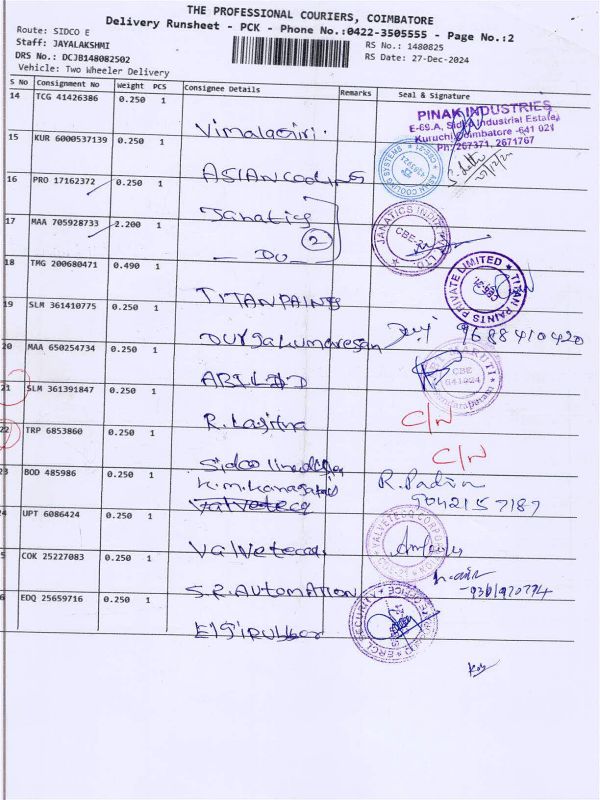 THE PROFESSIONAL COURIERS, COIMBATORE
Delivery Runsheet - PCK - Phone No.:0422-3505555 - Page No.:2
Route: SIDCO E
Staff: JAYALAKSHMI
RS No.: 1480825
DRS No.: DCJB148082502
RS Date: 27-Dec-2024
Vehicle: Two Wheeler Delivery
S No Consignment No Weight PCS Consignee Details Remarks Seal & Signature
14 TCG 41426386 0.250 1 Vimalagiri.
PINAK INDUSTRIES
E-69.A, Sidco Industrial Estate,
Kuruchi, Coimbatore -641 021
Ph: 267371, 2671767
15 KUR 6000537139 0.250 1 ASIAN
16 PRO 17162372 0.250 1 Janatics
17 MAA 705928733 2.200 1 — DO — 2
JANATICS INDIA LTD. CBE-
18 TMG 200680471 0.490 1 TITAN PAINTS
TITAN PAINTS PRIVATE LIMITED CBE-21.
19 SLM 361410775 0.250 1 Durgakumaresan Devi 9688410420
20 MAA 650254734 0.250 1
MARUTI CBE 641024
21 SLM 361391847 0.250 1 R. C/N
22 TRP 6853860 0.250 1 Sidco C/N
23 BOD 485986 0.250 1 K.M. R. 9042157187
24 UPT 6086424 0.250 1 Valveteca
VALVETECA CORPORATION
25 COK 25227083 0.250 1 S.R. Automation
26 EDQ 25659716 0.250 1 Elgi rubber
ERCL SECURITY